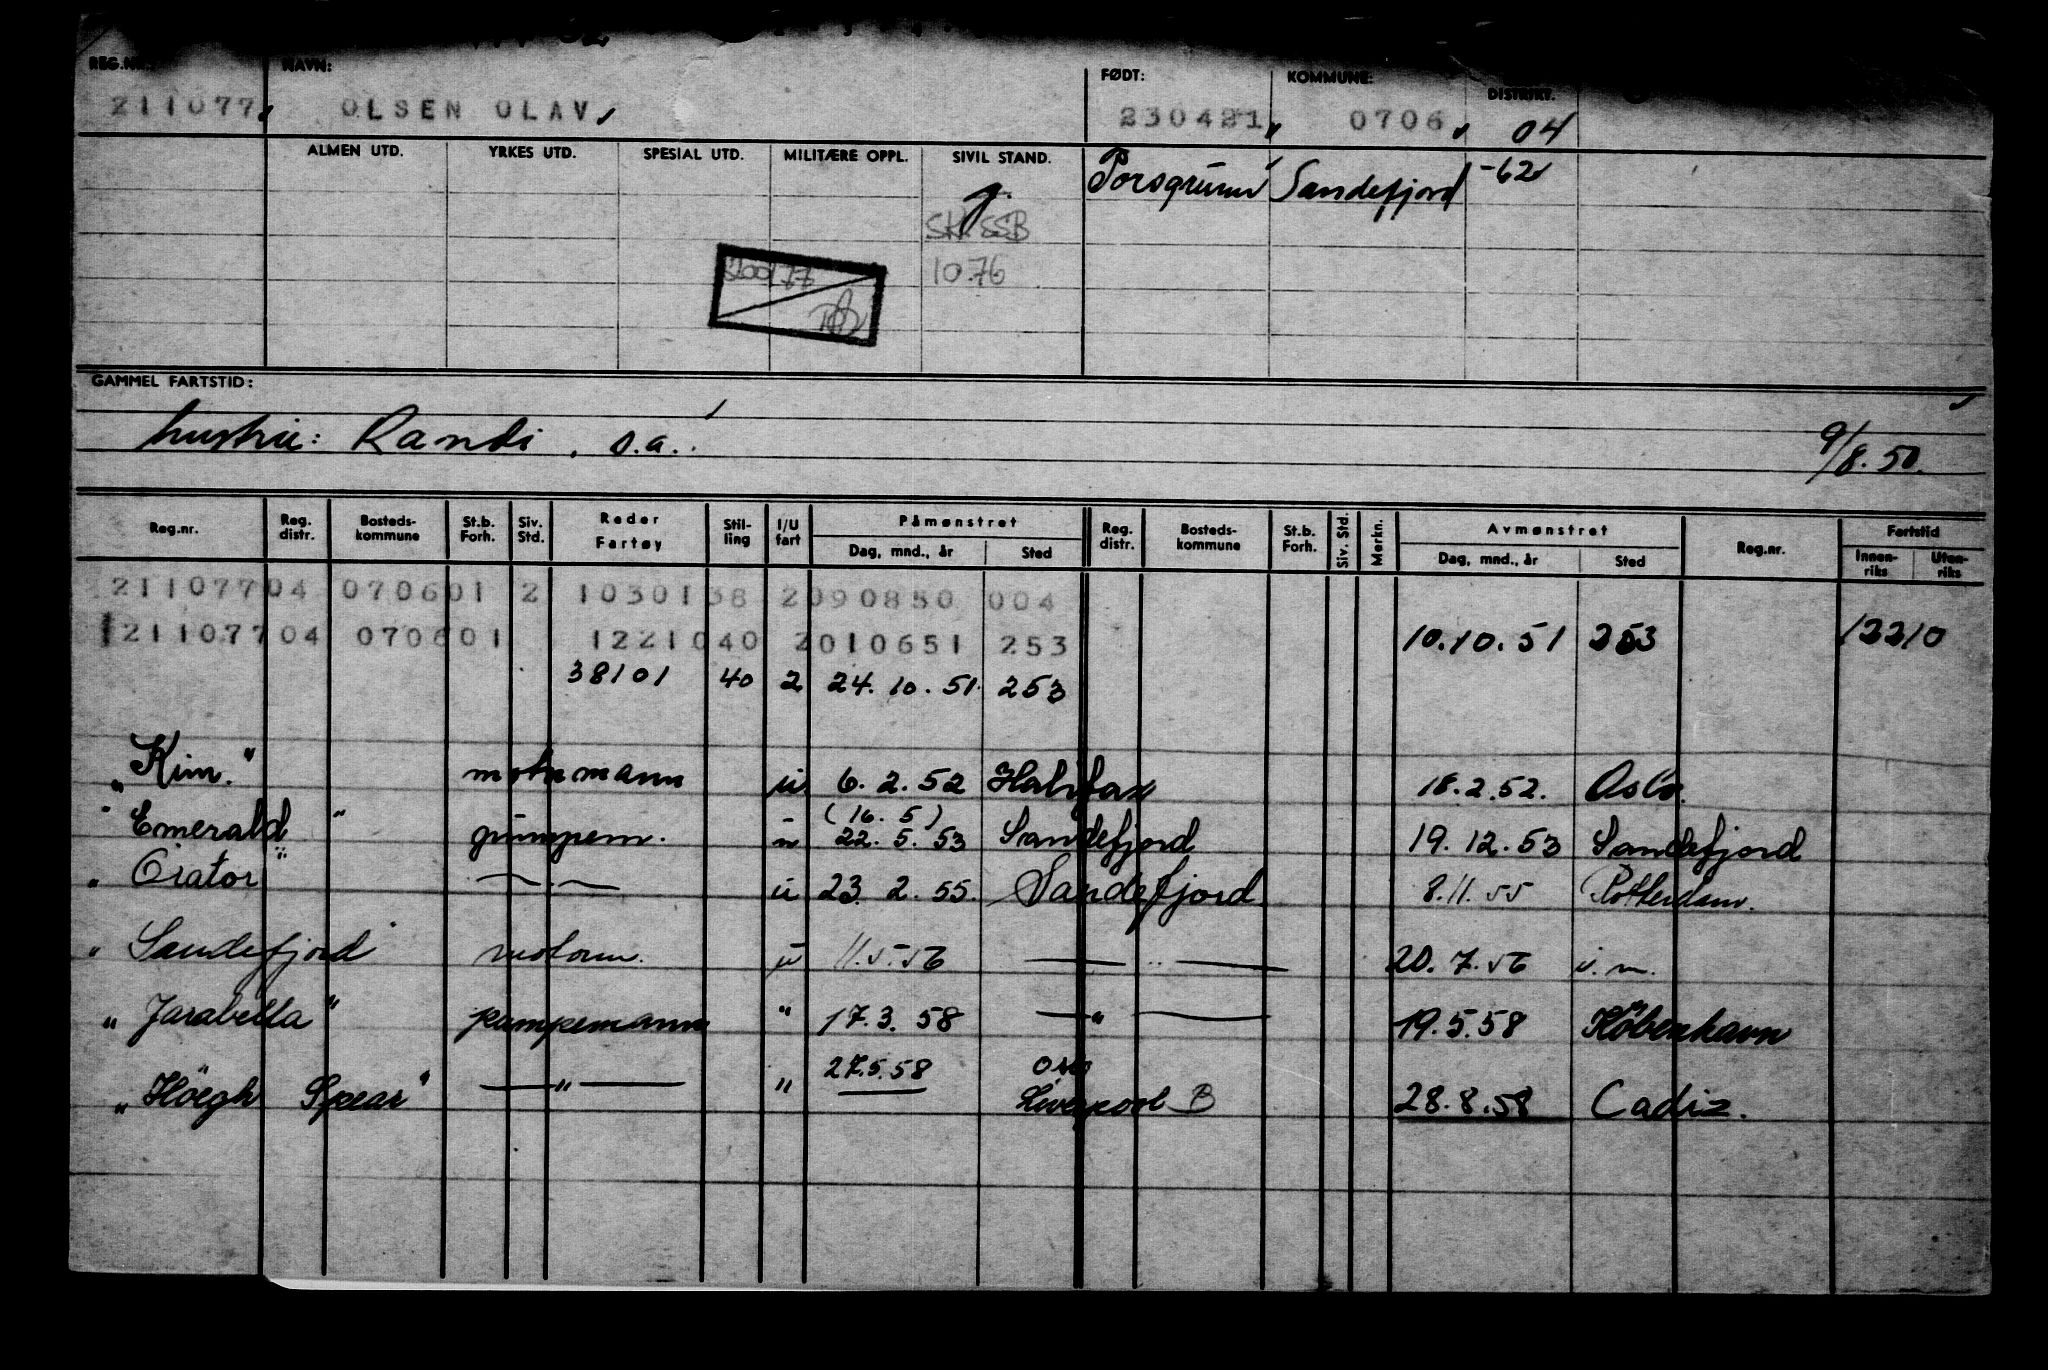 REG.NR. NAVN: FØDT: KOMMUNE: DISTRIKT.
211077 OLSEN OLAV 230421 0706 04
ALMEN UTD. YRKES UTD. SPESIAL UTD. MILITÆRE OPPL. SIVIL STAND. Porsgrunn Sandefjord -62
g.
SSB
10.76
GAMMEL FARTSTID:
hustru: Randi, s.a. 9/8.50.
Reg.nr. Reg. distr. Bosteds-kommune St.b. Forh. Siv. Std. Reder Fartøy Stil-ling I/U fart Påmønstret Reg. distr. Bosteds-kommune St.b. Forh. Siv. Std. Merkn. Avmønstret Reg.nr. Fartstid
Dag, mnd., år Sted Dag, mnd., år Sted Innen-riks Uten-riks
211077 04 0706 01 2 1030138 2 090850 004
211077 04 0706 01 1221040 2 010651 253 10.10.51 253 12210
38101 40 2 24.10.51 253
"Kim." motormann u 6.2.52 Halifax 18.2.52. Oslo.
(16.5)
" Emerald " pumpem. u 22.5.53 Sandefjord 19.12.53 Sandefjord
" Orator " — " — u 23.2.55. Sandefjord 8.11.55 Rotterdam.
" Sandefjord " motorm. u 11.5.56 — " — 20.7.56 u.m.
" Jarabella " pumpemann " 17.3.58 — " — 19.5.58 København
27.5.58 Oslo
"Höegh Spear" — " — " Liverpool B 28.8.58 Cadiz.